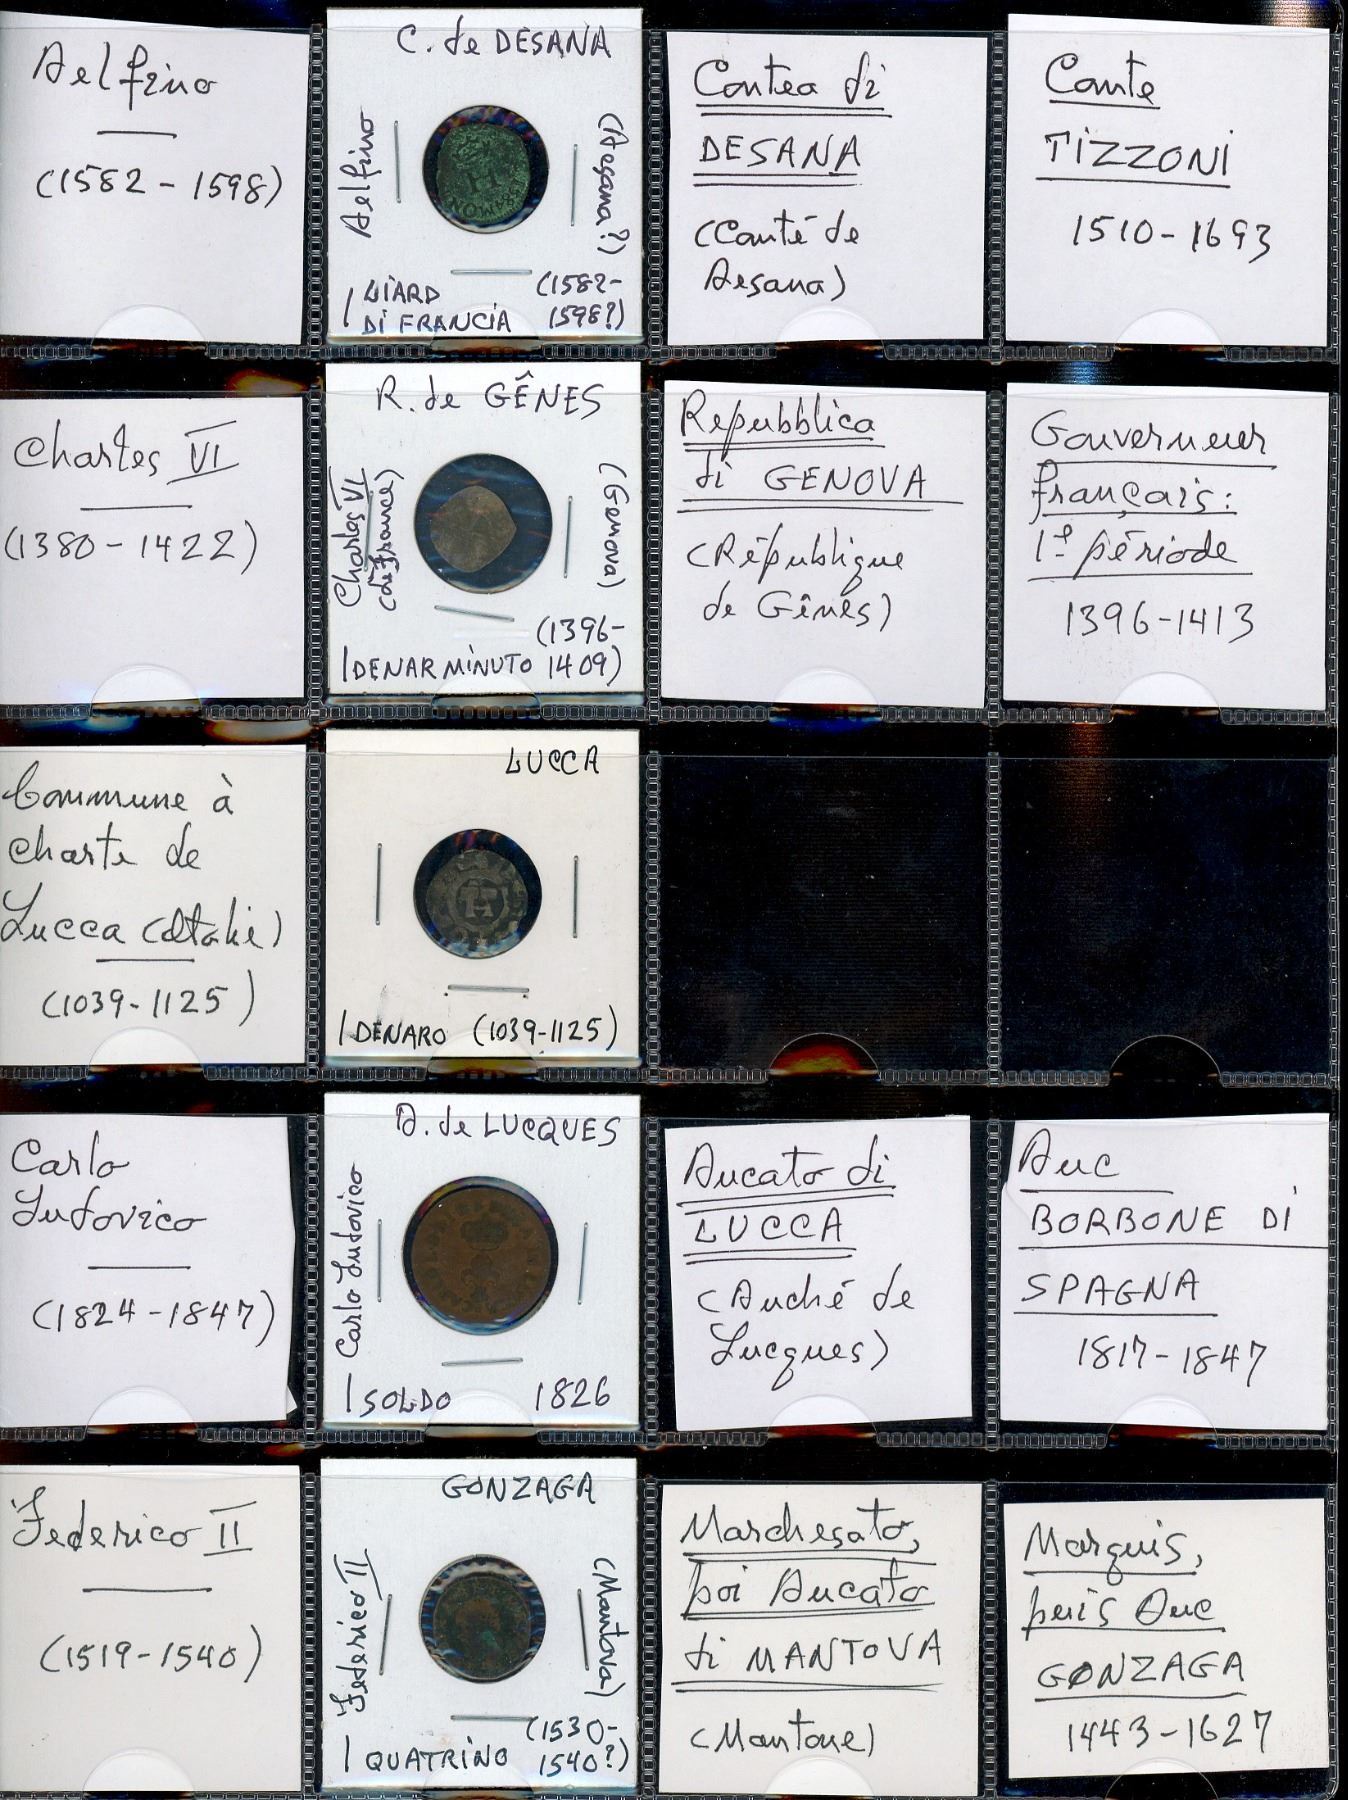 Delfino
(1582-1598)
C. de DESANA
Delfino
(Desana?)
1 LIARD
DI FRANCIA
(1582-
1598?)
Contea di
DESANA
(Comté de
Desana)
Comte
TIZZONI
1510-1693
Charles VI
(1380-1422)
R. de GÊNES
Charles VI
(de France)
(Genova)
(1396-
1 DENAR MINUTO 1409)
Repubblica
di GENOVA
(République
de Gênes)
Gouverneur
français:
1e période
1396-1413
Commune à
charte de
Lucca (Italie)
(1039-1125)
LUCCA
1 DENARO (1039-1125)
Carlo
Ludovico
(1824-1847)
D. de LUCQUES
Carlo Ludovico
1 SOLDO 1826
Ducato di
LUCCA
(Duché de
Lucques)
Duc
BORBONE DI
SPAGNA
1817-1847
Federico II
(1519-1540)
GONZAGA
Federico II
(Mantova)
(1530-
1 QUATRINO 1540?)
Marchesato,
poi Ducato
di MANTOVA
(Mantoue)
Marquis,
puis Duc
GONZAGA
1443-1627